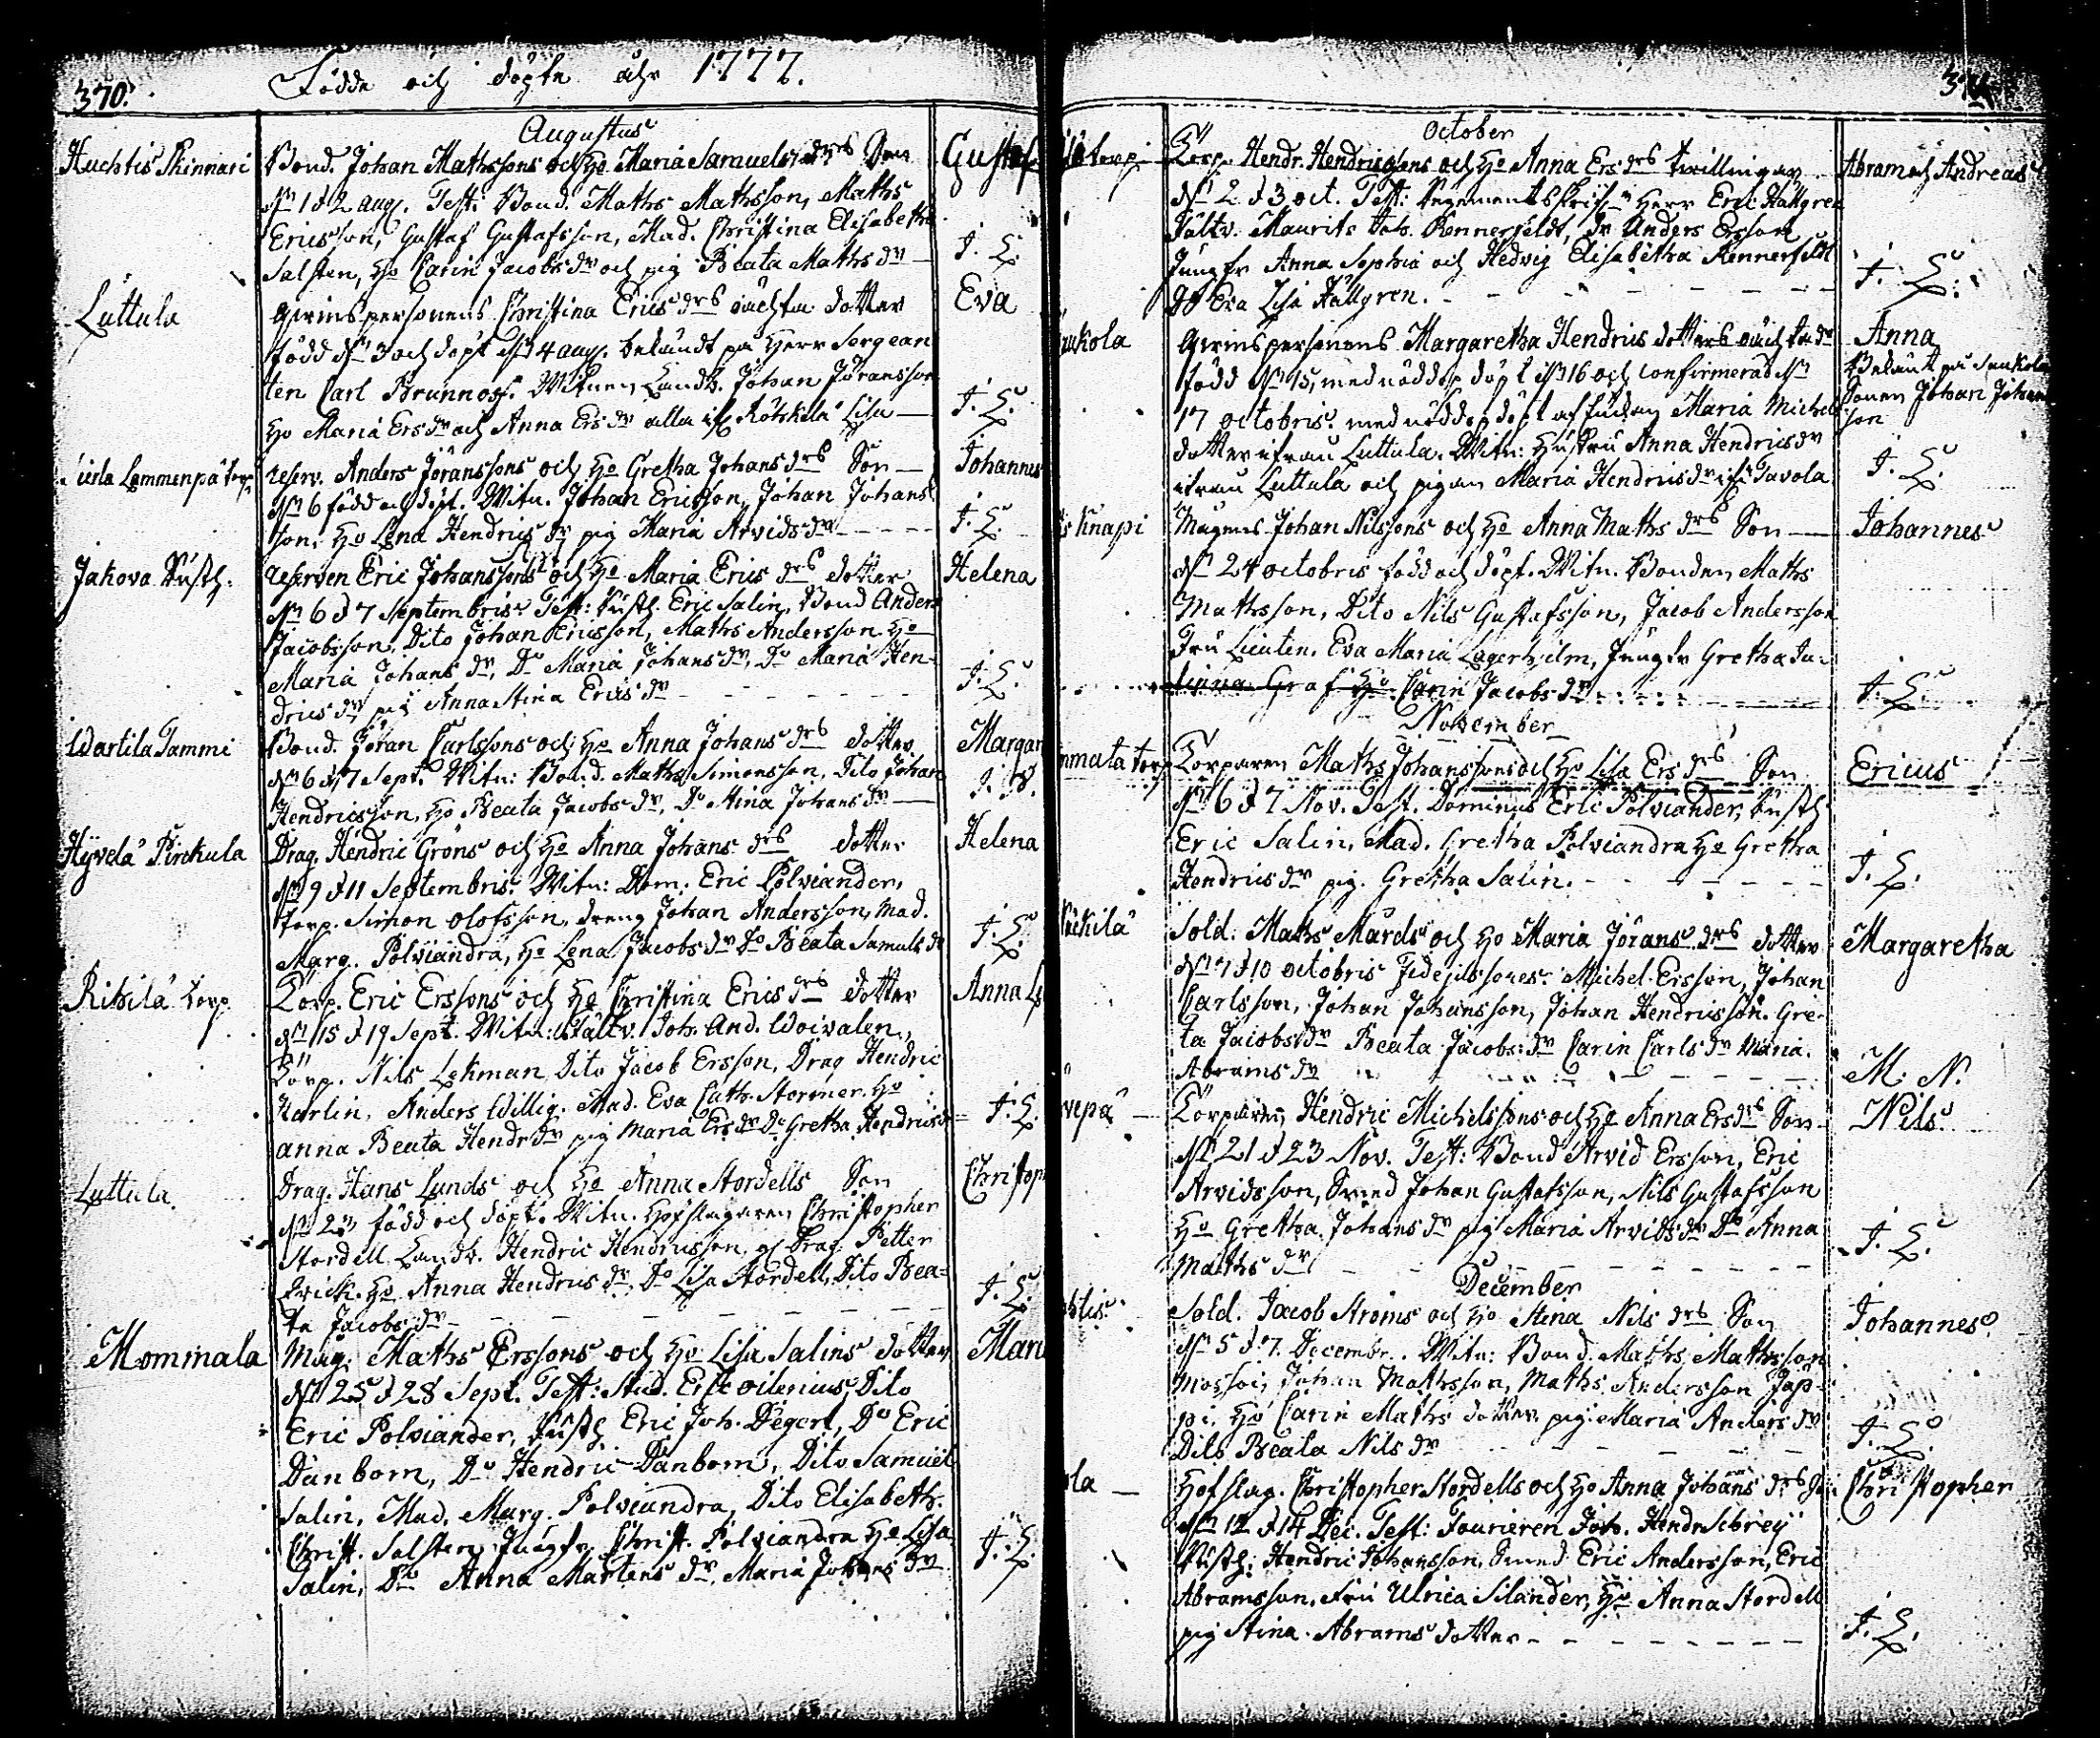 370.
Födde och döpte åhr 1777.
Augustus
Huchtis Skinnari
Bond. Johan Mathssons och Ho Maria Samuels drs Son
Gustaf
dn 1 d 2 aug. Test: Bond. Maths Mathsson, Maths
Ericsson, Gustaf Gustafsson, Mad. Christina Elisabetha
Salsten, Ho Carin Jacobs dr och pig Beata Maths dr
J. L.
Luttula
qvinspersonens Christina Erics drs oächta dotter
Eva
född dn 3 och döpt dn 4 aug. belündt på Herr Sergean
ten Carl Brunnou. Witnen Landb. Johan Jöransson
Ho Maria Ers dr och Anna Ers dr alla if. Rötskelä Lisa
J. L.
Lammenpä torp
reserv. Anders Jöranssons och Ho Gretha Johans drs Son
Johannes
dn 6 född och döpt. Witn. Johan Ericsson, Johan Johans
son, Ho Lena Hendrics dr pig Maria Arvids dr
J. L.
Jakova Rusth.
reserven Eric Johanssons och Ho Maria Erics drs dotter
Helena
dn 6 d 7 Septembris Test: Rusth. Eric Salin, Bond Anders
Jacobsson, Dito Johan Ericsson, Maths Andersson Ho
Maria Johans dr, Do Maria Johans dr, Do Maria Hen-
drics dr pig Anna Stina Erics dr
J. L.
Wartila Tammi
Bond. Jöran Carlssons och Ho Anna Johans drs dotter
Margar
dn 6 d 7 Sept. Witn: Bond. Maths Simonsson, Dito Johan
Hendricsson, Ho Beata Jacobs dr, Do Stina Johans dr
Hyvelä Pirckula
Drag. Hendric Gröns och Ho Anna Johans drs dotter
Helena
dn 9 d 11 Septembris Witn: Dom. Eric Polviander,
torp. Simon Olofsson, dreng Johan Andersson, Mad.
Marg. Polviandra, Ho Lena Jacobs dr Do Beata Samuls dr
J. L.
Rihilä torp.
Torp. Eric Erssons och Ho Christina Erics drs dotter
Anna L
dn 15 d 19 Sept. Witn: Fältv. Joh. And. Woivalen,
Torp. Nils Lehman, Dito Jacob Ersson, Drag Hendric
Karlin, Anders Willig. Mad. Eva Cath. Stormer. Ho
anna Beata Hendr dr pig Maria Ers dr Do Gretha Hendrics dr
J. L.
Luttula
Drag. Hans Lunds och Ho Anna Stordells Son
Christop
dn 23 född och döpt. Witn. Hofslagaren Christopher
Stordell Landb. Hendric Hendricsson, gl Drag. Petter
Qvick. Ho Anna Hendrics dr, Do Lisa Stordell, Dito Bea-
ta Jacobs dr
J. L.
Mommala
Mag. Maths Erssons och Ho Lisa Salins dotter
Mari
dn 25 d 28 Sept. Test: Stud. Eric Oilenius, Dito
Eric Polviander, Rusth Eric Joh. Degert, Do Eric
Danbom, Do Hendric Danbom, Dito Samuel
Salin, Mad. Marg. Polviandra, Dito Elisabeth.
Christ. Salsten, Jungfr. Christ. Polviandra Ho Lisa
Salin, Do Anna Mårtens dr, Maria Johans dr
J. L.
October
torp
Torp. Hendr. Hendricssons och Ho Anna Ers drs twillingar
Abram och Andreas
dn 2 d 3 oct. Test: Regementsskrifv. Herr Eric Hallgren
Fältv. Maurits Joh. Rennerfeldt, dr Anders Ersson
Jungfr Anna Sophia och Hedvig Elisabetha Rennerfeldt
Do Eva Lisa Hallgren.
J. L.
ukola
qvinspersonens Margaretha Hendrics dotters oächta dr
Anna
född dn 15, med nöddop döpt dn 16 och confirmerad dn
Belünt på Saukola
Sonen Johan Johans
son
17 octobris. med nöddop döpt af Enckan Maria Michels
dotter ifrån Luttula. Witn: Hustru Anna Hendrics dr
ifrån Luttula och pigan Maria Hendrics dr if. Tavola
J. L.
Knapi
Magens Johan Nilssons och Ho Anna Maths drs Son
Johannes
dn 24 octobris född och döpt. Witn. Bonden Maths
Mathsson, Dito Nils Gustafsson, Jacob Andersson
Fru Lieuten. Eva Maria Lagerhjelm, Jungfr Gretha Ju-
liana Graf Ho Carin Jacobs dr
J. L.
November
mmala torp
Torparen Maths Johanssons och Ho Lisa Ers drs Son
Ericus
dn 6 d 7 Nov. Test. Dominus Eric Polviander, Rusth
Eric Salin, Mad. Gretha Polviandra Ho Gretha
Hendrics dr pig. Gretha Salin.
J. L.
kilä
Sold. Maths Mårds och Ho Maria Jörans drs dotter
Margaretha
dn 7 d 10 octobris Fidejussores: Michel Ersson, Johan
Carlsson, Johan Johansson, Johan Hendricsson. Gre-
ta Jacobs dr Beata Jacobs dr Carin Carls dr Maria
Abrams dr
M. N.
vepä
Torparen Hendric Michelssons och Ho Anna Ers drs Son
Nils
dn 21 d 23 Nov. Test: Bond Arvid Ersson, Eric
Arvidsson, Smed Johan Gustafsson, Nils Gustafsson
Ho Gretha Johans dr pig Maria Arvids dr Do Anna
Maths dr
J. L.
December
htis
Sold. Jacob Ströms och Ho Stena Nils drs Son
Johannes
dn 5 d 7 Decembr. Witn: Bond. Maths Mathsson
Mossoi, Johan Mathsson, Maths Andersson Jap-
pi, Ho Carin Maths dotter, pig. Maria Anders dr
Dito Beata Nils dr
J. L.
la
Hofslag. Christopher Stordells och Ho Anna Johans drs
Christopher
dn 12 d 14 Dec. Test: Fourieren Joh. Hendr Sebrey
Rusth. Hendric Johansson, Smed Eric Andersson, Eric
Abramsson, Fru Ulrica Silander, Ho Anna Stordell
pig Stina Abrams dotter
J. L.